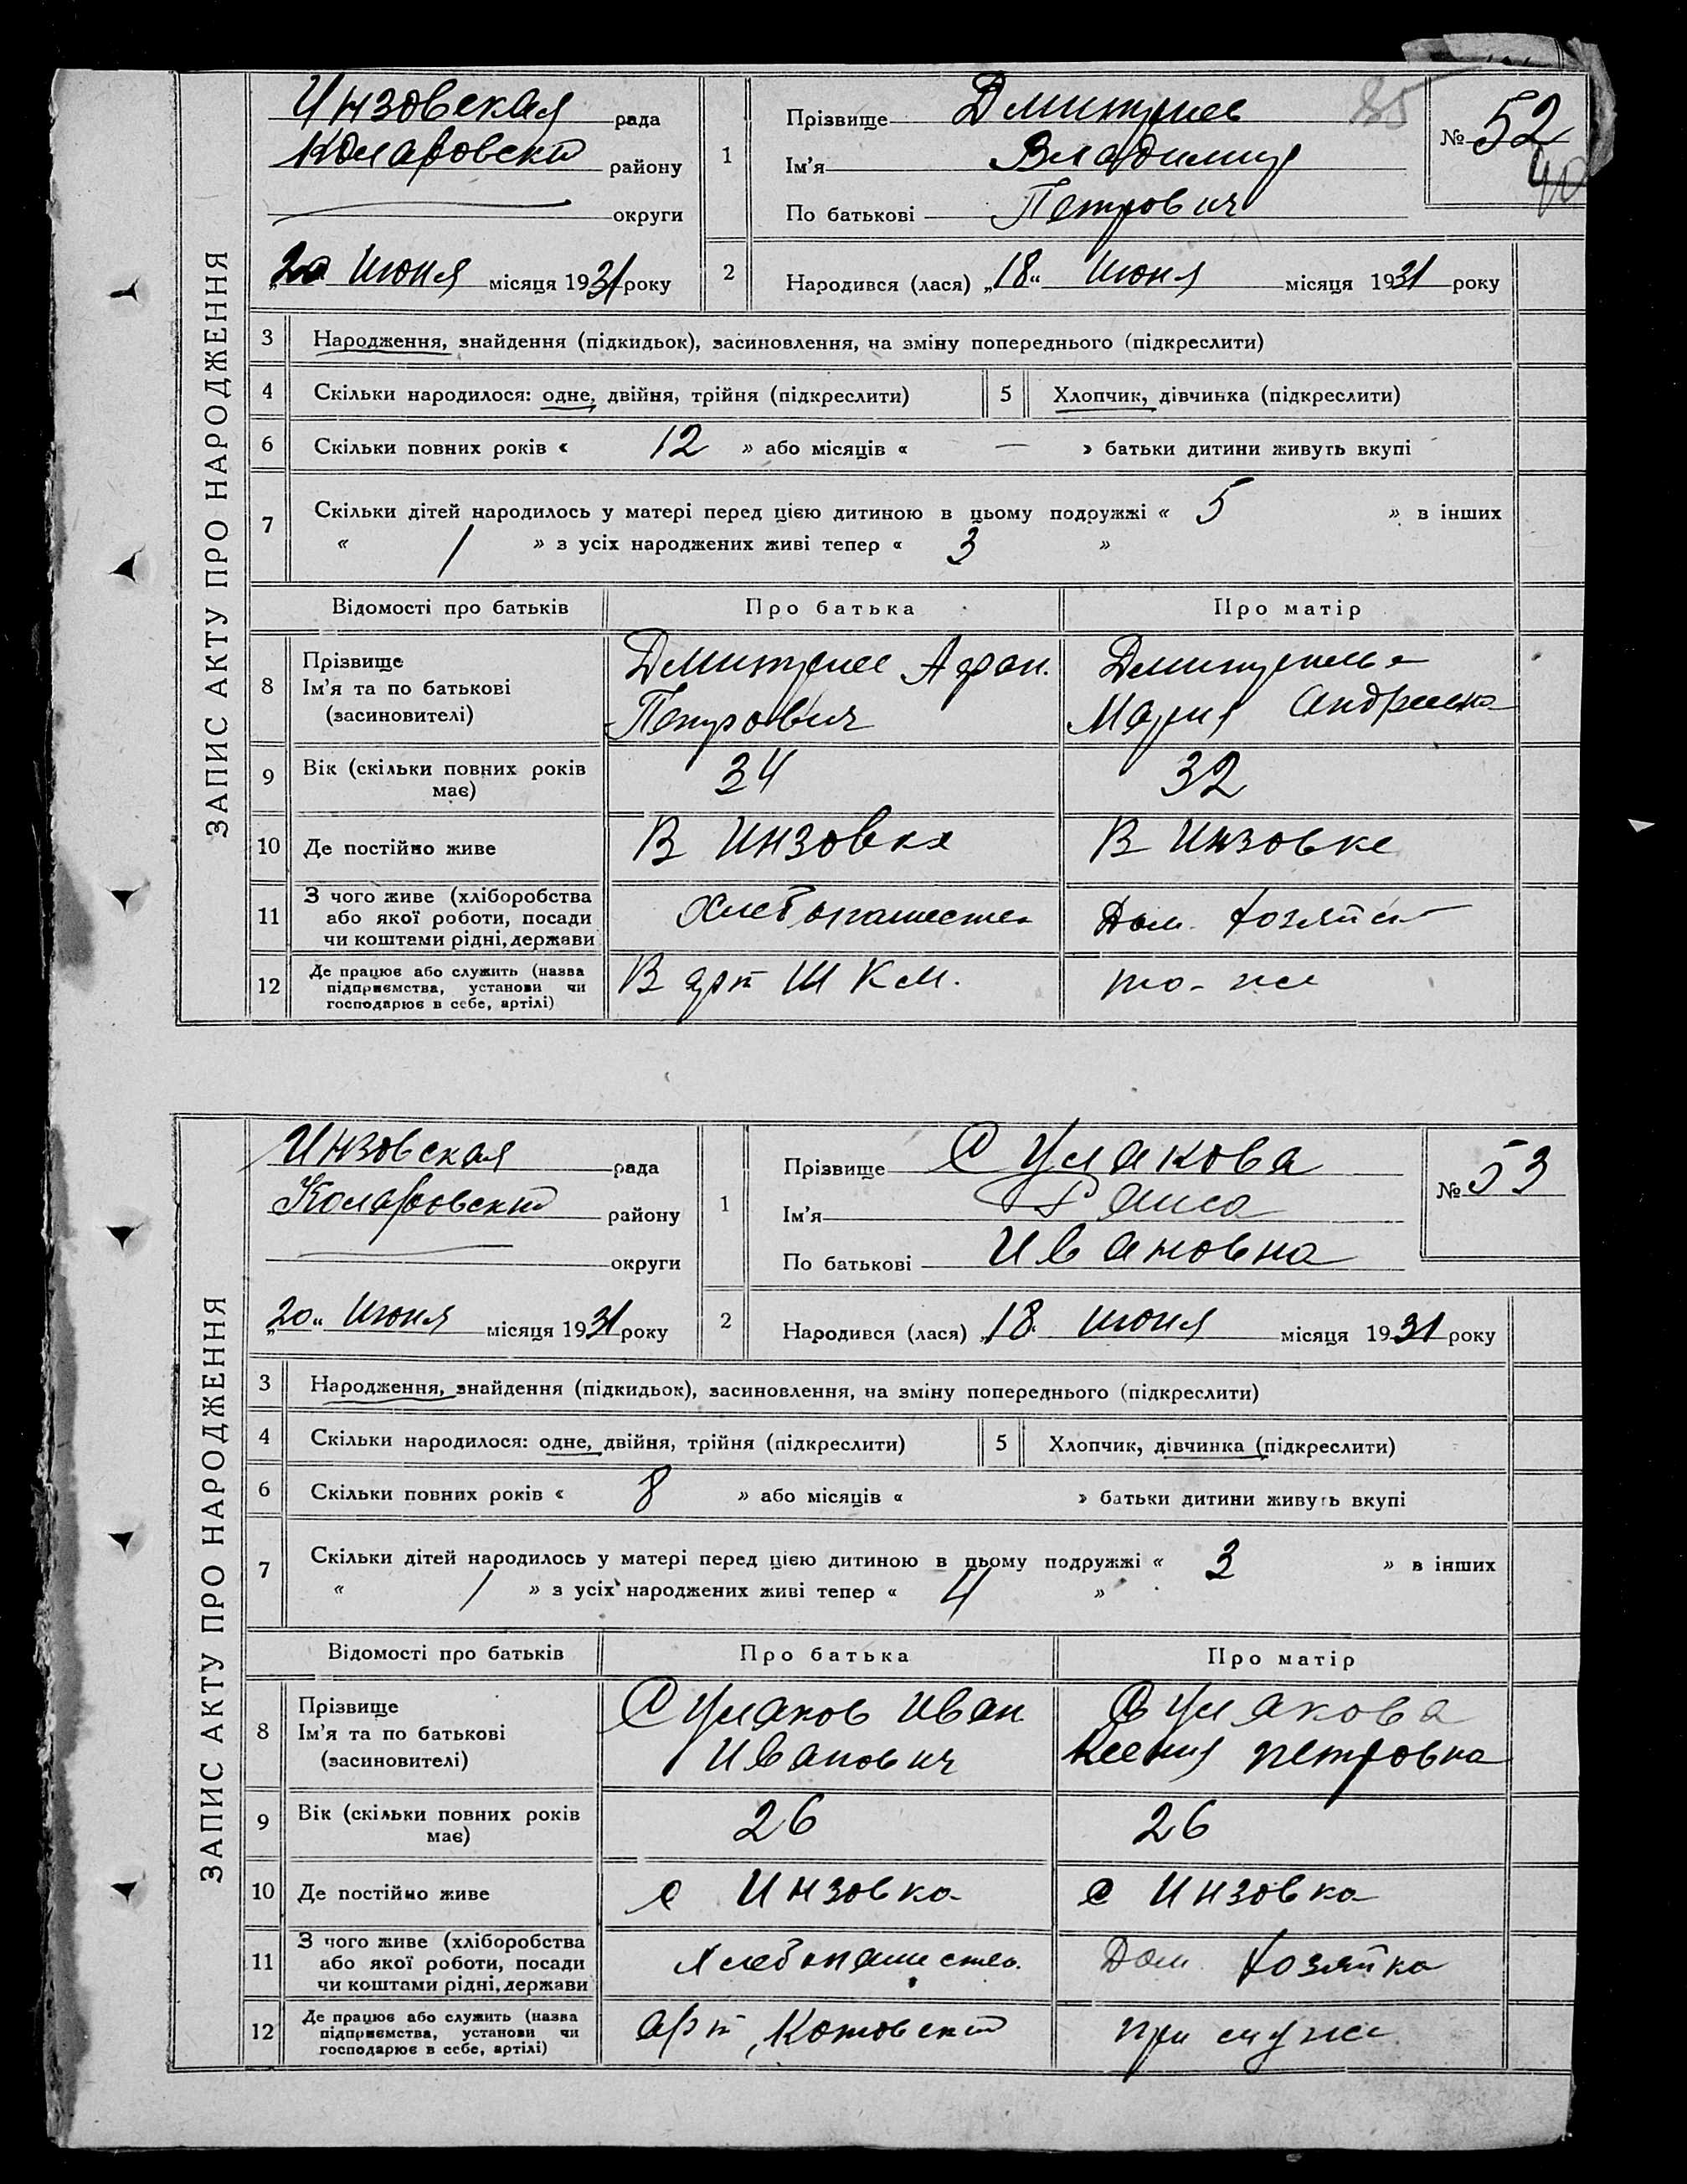 ЗАПИС АКТУ ПРО НАРОДЖЕННЯ
Инзовская рада
Коларовский району
округи
20 Июня місяця 1931 року
1
Прізвище Дмитриев
Ім'я Владимир
По батькові Петрович
85
№ 52
40
2 Народився (лася) „18" Июня місяця 1931 року
3 Народження, знайдення (підкидьок), засиновлення, на зміну попереднього (підкреслити)
4 Скільки народилося: одне, двійня, трійня (підкреслити) 5 Хлопчик, дівчинка (підкреслити)
6 Скільки повних років « 12 » або місяців « — » батьки дитини живуть вкупі
7 Скільки дітей народилось у матері перед цією дитиною в цьому подружжі « 5 » в інших
« / » з усіх народжених живі тепер « 3 »
Відомості про батьків Про батька Про матір
8 Прізвище
Ім'я та по батькові
(засиновителі)
Дмитриев Афан.
Петрович
Дмитриева
Мария Андреевна
9 Вік (скільки повних років
має)
34 32
10 Де постійно живе В Инзовке В Инзовке
11 З чого живе (хліборобства
або якої роботи, посади
чи коштами рідні, держави
Хлебопашество Дом. Хозяйст
12 Де працює або служить (назва
підприємства, установи чи
господарює в себе, артілі)
В арт Ш К М. то-же
ЗАПИС АКТУ ПРО НАРОДЖЕННЯ
Инзовская рада
Коларовский району
округи
„20" Июня місяця 1931 року
1
Прізвище Сумакова
Ім'я Раиса
По батькові Ивановна
№ 53
2 Народився (лася) „18" Июня місяця 1931 року
3 Народження, знайдення (підкидьок), засиновлення, на зміну попереднього (підкреслити)
4 Скільки народилося: одне, двійня, трійня (підкреслити) 5 Хлопчик, дівчинка (підкреслити)
6 Скільки повних років « 8 » або місяців « » батьки дитини живуть вкупі
7 Скільки дітей народилось у матері перед цією дитиною в цьому подружжі « 3 » в інших
« / » з усіх народжених живі тепер « 4 »
Відомості про батьків Про батька Про матір
8 Прізвище
Ім'я та по батькові
(засиновителі)
Сумаков Иван
Иванович
Сумакова
Ксения Петровна
9 Вік (скільки повних років
має)
26 26
10 Де постійно живе с Инзовка с Инзовка
11 З чого живе (хліборобства
або якої роботи, посади
чи коштами рідні, держави
Хлебопашество. Дом. Хозяйка
12 Де працює або служить (назва
підприємства, установи чи
господарює в себе, артілі)
арт, Котовский при муже